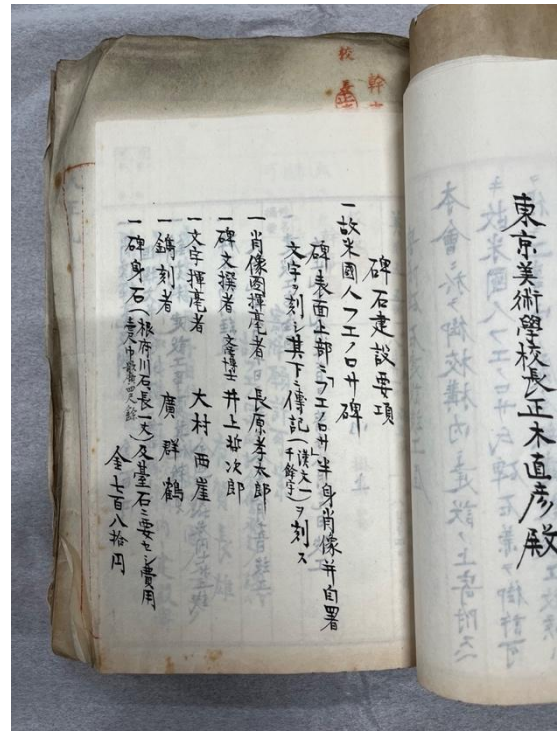 東京美術學校長正木直彦殿
碑石建設要項
一故米國人フエノロサ碑
碑表面上部ニ「フエノロサ」半身肖像并自署
文字ヲ刻シ其下ニ傳記(漢文千餘字)ヲ刻ス
一肖像圖揮毫者 長原孝太郎
一碑文撰者 文學博士 井上哲次郎
一文字揮毫者 大村西崖
一鐫刻者 廣群鶴
一碑身石(根府川石長一丈
)及基石ニ要セシ費用
金七百八拾円